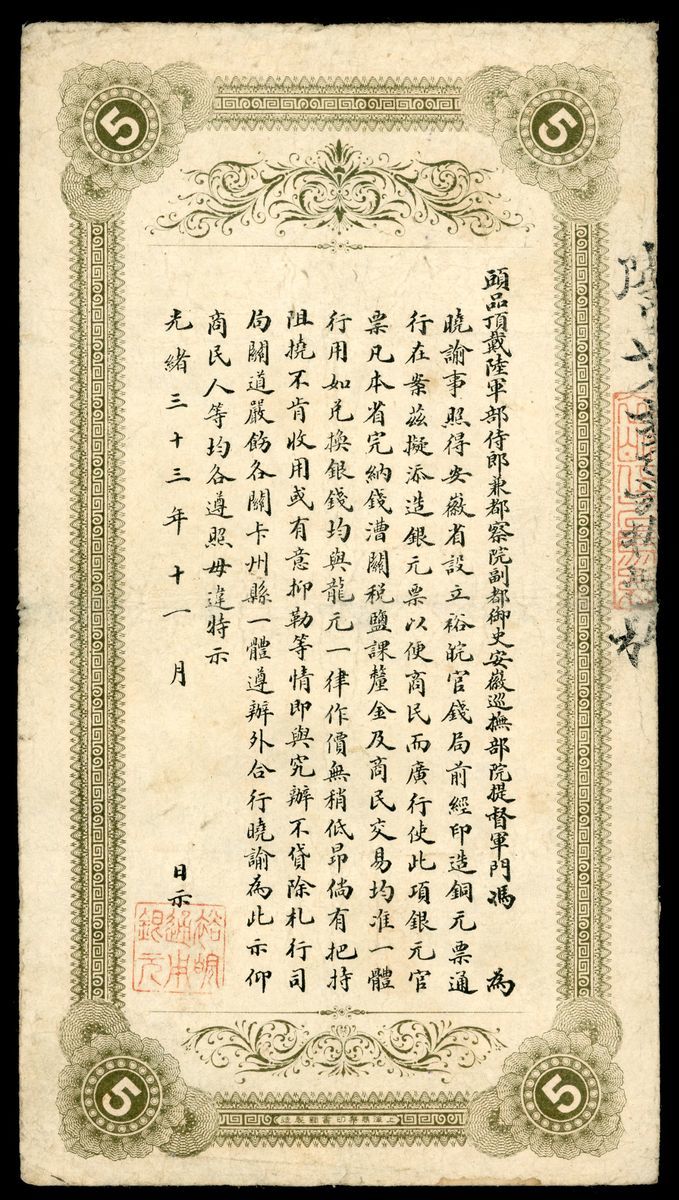 頭品頂戴陸軍部侍郎兼都察院副都御史安徽巡撫部院提督軍門馮 為
曉諭事照得安徽省設立裕皖官錢局前經印造銅元票通
行在案茲擬添造銀元票以便商民而廣行使此項銀元官
票凡本省完納錢漕關稅鹽課釐金及商民交易均准一體
行用如兌換銀錢均與龍元一律作價無稍低昂倘有把持
阻撓不肯收用或有意抑勒等情即與究辦不貸除札行司
局關道嚴飭各關卡州縣一體遵辦外合行曉諭為此示仰
商民人等均各遵照毋違特示
光緒三十三年十一月 日示
裕皖
通用
銀元
5
5
5
5